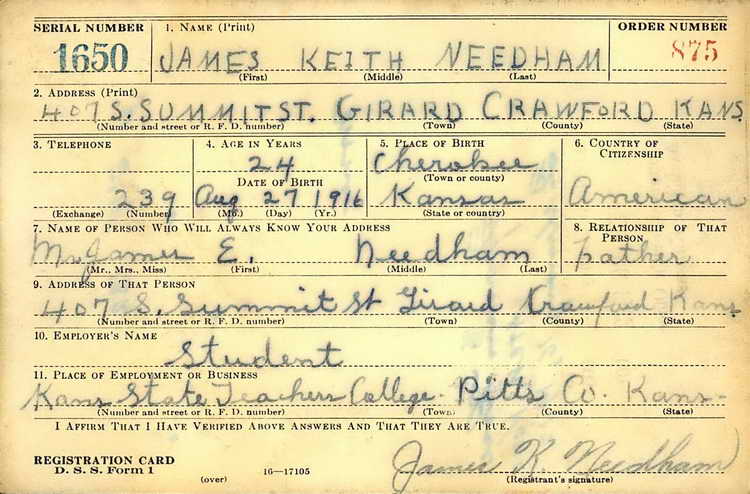 SERIAL NUMBER 1. NAME (Print) ORDER NUMBER
1650 JAMES KEITH NEEDHAM 875
(First) (Middle) (Last)
2. ADDRESS (Print)
407 S. SUMMIT ST. GIRARD CRAWFORD KANS.
(Number and street or R. F. D. number) (Town) (County) (State)
3. TELEPHONE 4. AGE IN YEARS 5. PLACE OF BIRTH 6. COUNTRY OF CITIZENSHIP
24 Cherokee
DATE OF BIRTH (Town or county)
239 Aug 27 1916 Kansas American
(Exchange) (Number) (Mo.) (Day) (Yr.) (State or country)
7. NAME OF PERSON WHO WILL ALWAYS KNOW YOUR ADDRESS 8. RELATIONSHIP OF THAT PERSON
Mr. James E. Needham father
(Mr., Mrs., Miss) (First) (Middle) (Last)
9. ADDRESS OF THAT PERSON
407 S. Summit St Girard Crawford Kans
(Number and street or R. F. D. number) (Town) (County) (State)
10. EMPLOYER'S NAME
Student
11. PLACE OF EMPLOYMENT OR BUSINESS
Kans State Teachers College - Pitts Co. Kans -
(Number and street or R. F. D. number) (Town) (County) (State)
I AFFIRM THAT I HAVE VERIFIED ABOVE ANSWERS AND THAT THEY ARE TRUE.
REGISTRATION CARD
D. S. S. Form 1 16-17105 James K. Needham
(over) (Registrant's signature)